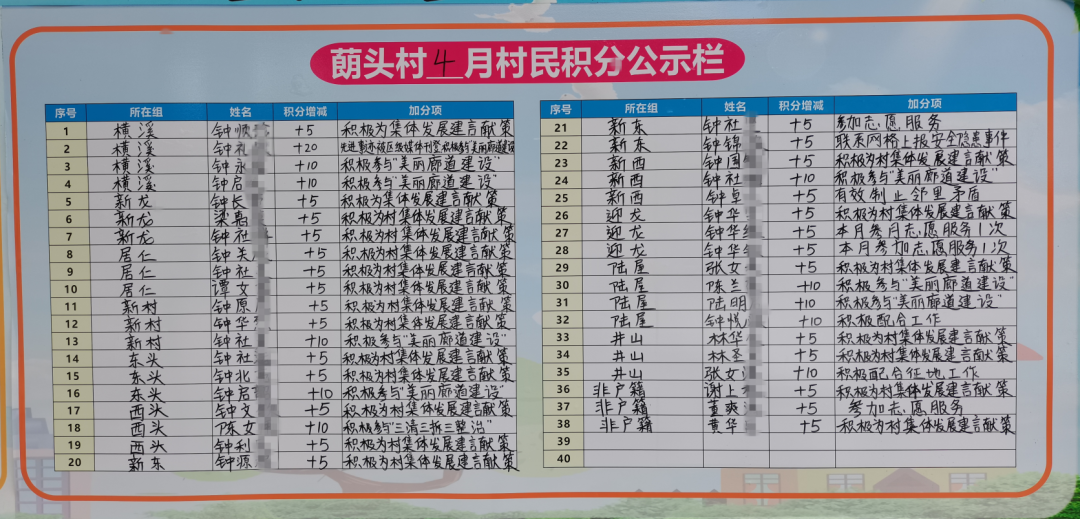 萠头村4月村民积分公示栏
序号 所在组 姓名 积分增减 加分项
1 横溪 钟顺 +5 积极为集体发展建言献策
2 横溪 钟礼 +20
3 横溪 钟永 +10 积极参与"美丽廊道建设"
4 横溪 钟启 +10 积极参与"美丽廊道建设"
5 新龙 钟长 +5 积极为集体发展建言献策
6 新龙 梁嘉 +5 积极为村集体发展建言献策
7 新龙 钟社 +5 积极为村集体发展建言献策
8 居仁 钟关 +5 积极为村集体发展建言献策
9 居仁 钟社 +5 积极为村集体发展建言献策
10 居仁 谭文 +5 积极为村集体发展建言献策
11 新村 钟原 +5 积极为村集体发展建言献策
12 新村 钟华 +5 积极为村集体发展建言献策
13 新村 钟社 +10 积极参与"美丽廊道建设"
14 东头 钟社 +5 积极为村集体发展建言献策
15 东头 钟北 +5 积极为村集体发展建言献策
16 东头 钟启 +10 积极参与"美丽廊道建设"
17 西头 钟文 +5 积极为村集体发展建言献策
18 西头 陈女 +10 积极参与"三清三拆三整治"
19 西头 钟利 +5 积极为村集体发展建言献策
20 新东 钟源 +5 积极为村集体发展建言献策
序号 所在组 姓名 积分增减 加分项
21 新东 钟社 +5 参加志愿服务
22 新东 钟锦 +5 联系网格上报安全隐患事件
23 新西 钟国 +5 积极为村集体发展建言献策
24 新西 钟社 +10 积极参与"美丽廊道建设"
25 新西 钟卓 +5 有效制止邻里矛盾
26 迎龙 钟华 +5 积极为村集体发展建言献策
27 迎龙 钟华 +5 本月参加志愿服务1次
28 迎龙 钟华 +5 本月参加志愿服务1次
29 陆屋 张女 +5 积极为村集体发展建言献策
30 陆屋 陈兰 +10 积极参与"美丽廊道建设"
31 陆屋 陆明 +10 积极参与"美丽廊道建设"
32 陆屋 钟悦 +10 积极配合工作
33 井山 林华 +5 积极为村集体发展建言献策
34 井山 林圣 +5 积极为村集体发展建言献策
35 井山 张女 +10 积极配合征地工作
36 非户籍 谢上 +5 积极为村集体发展建言献策
37 非户籍 黄爽 +5 参加志愿服务
38 非户籍 黄华 +5 积极为村集体发展建言献策
39
40